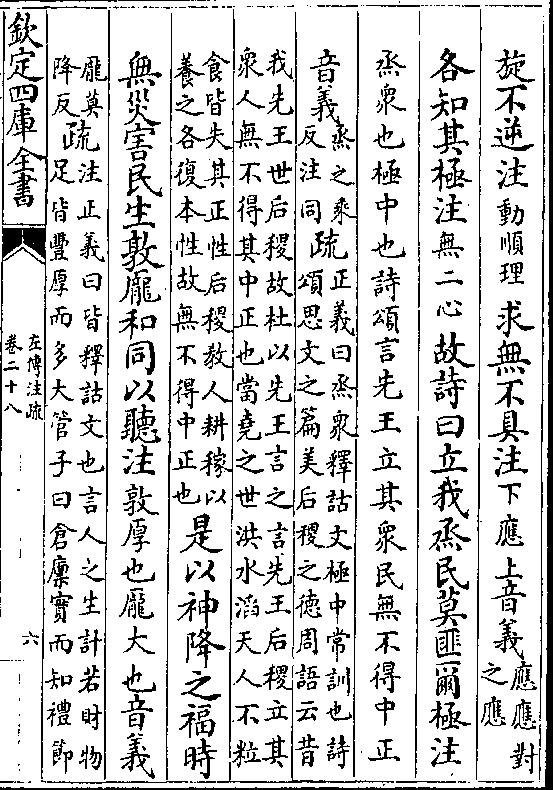 旋不逆注動順理求無不具注下應上音義應應對
之應
各知其極注無二心故詩曰立我烝民莫匪爾極注
烝衆也極中也詩頌言先王立其衆民無不得中正
音義烝之乘
反注同疏正義曰烝衆釋詁文極中常訓也詩
頌思文之篇美后稷之德周語云昔
我先王世后稷故杜以先王言之言先王后稷立其
衆人無不得其中正也當堯之世洪水滔天人不粒
食皆失其正性后稷教人耕稼以
養之各復本性故無不得中正也是以神降之福時
無災害民生敦厖和同以聽注敦厚也厖大也音義
厖莫
降反疏注正義曰皆釋詁文也言人之生計若財物
足皆豐厚而多大管子曰倉廩實而知禮節
欽定四庫全書
左傳注疏
卷二十八
六